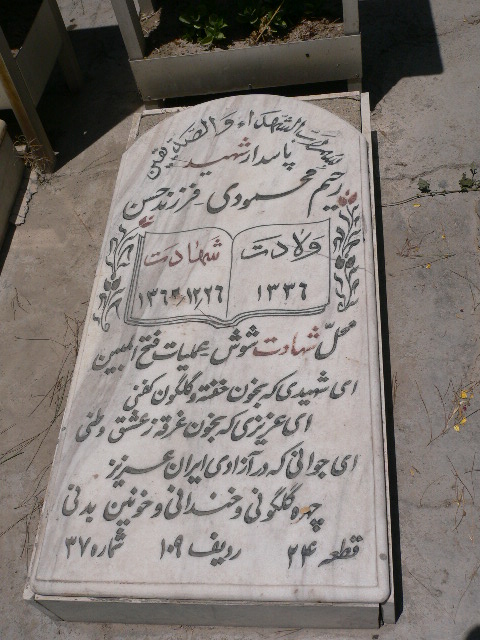 بسم رب الشهداء والصدیقین
پاسدار شهید
رحیم محمودی فرزند حسن
ولادت
۱۳۳۶
شهادت
محل شهادت شوش عملیات فتح المبین
ای شهیدی که بخون خفته و گلگون کفنی
ای عزیزی که بخون غرقه ز عشق وطنی
ای جوانی که در آزادی ایران عزیز
چهره گلگونی و خندانی و خونین بدنی
قطعه ۲۴ ردیف ۱۰۹ شماره ۳۷